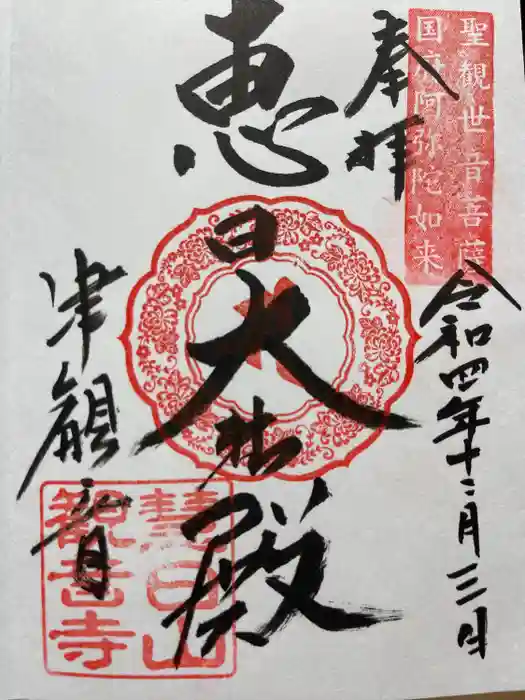 聖觀世音菩薩
国府阿弥陀如来
奉拝
令和四年十二月三日
恵日大悲殿
津觀音
慧日山
觀音寺